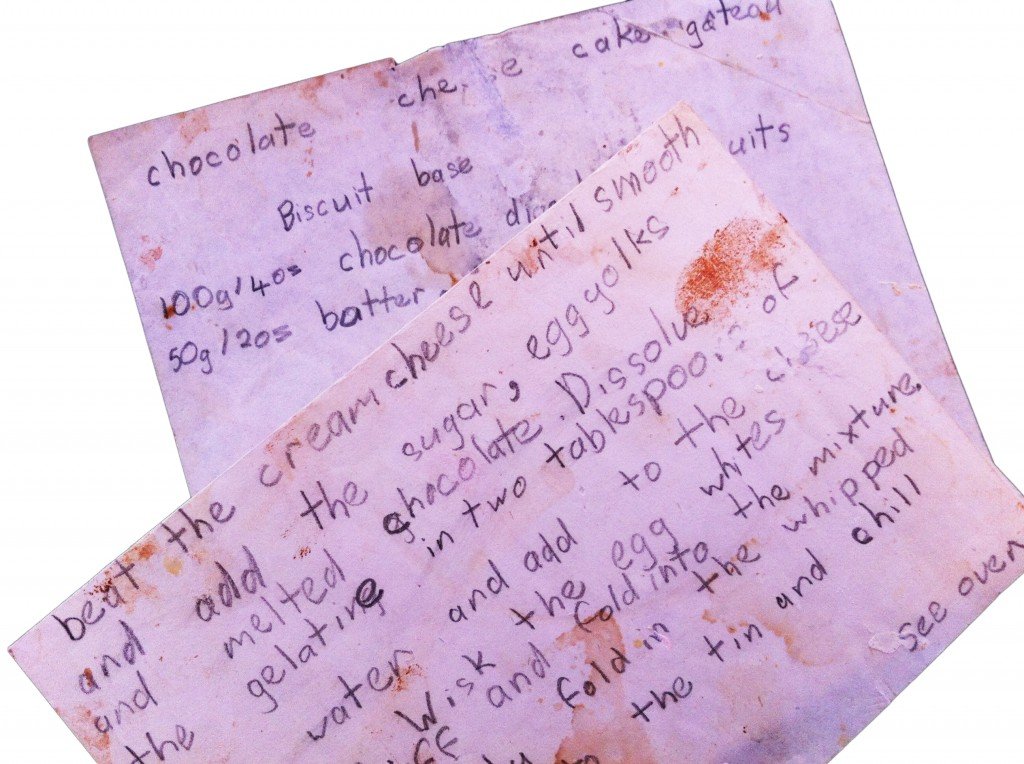 chocolate cheese cake gateau
Biscuit base
100g/4oz chocolate
50g/2oz batter
beat the cream cheese until smooth
and add the sugar, egg yolks
and melted chocolate. Dissolve
the gelatine in two tablespoons of
water and add to the cheese
Wisk the egg whites
and fold into the mixture
fold in the whipped
the tin and chill
See over